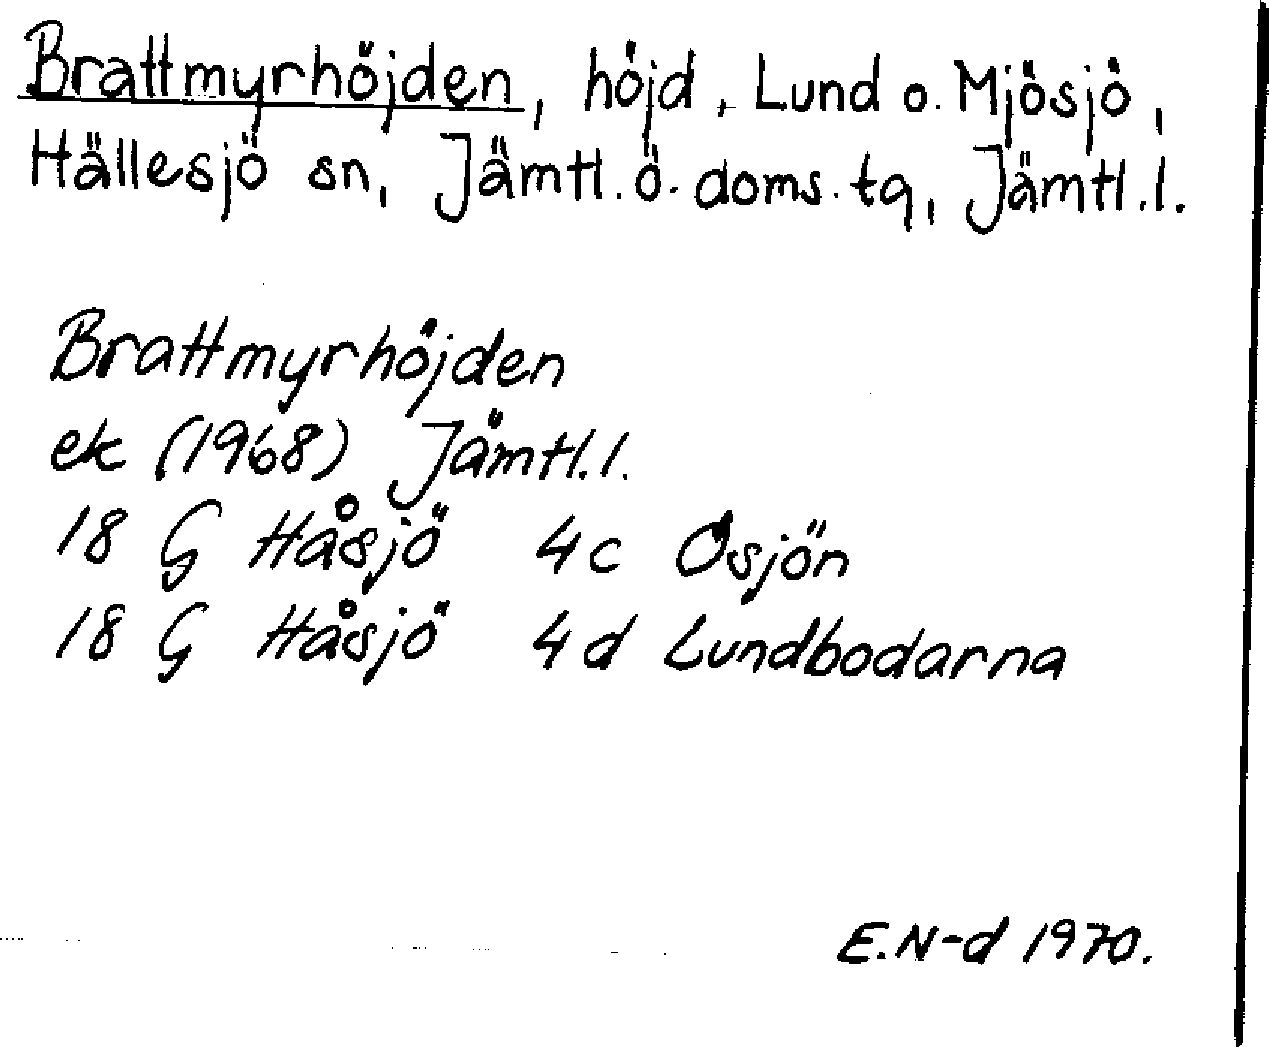 Brattmyrhöjden, höjd, Lund o. Mjösjö,
Hällesjö sn, Jämtl. ö. doms. tg, Jämtl. l.
Brattmyrhöjden
ek (1968) Jämtl. l.
18 G Håsjö 4c Osjön
18 G Håsjö 4d Lundbodarna
E.N-d 1970.